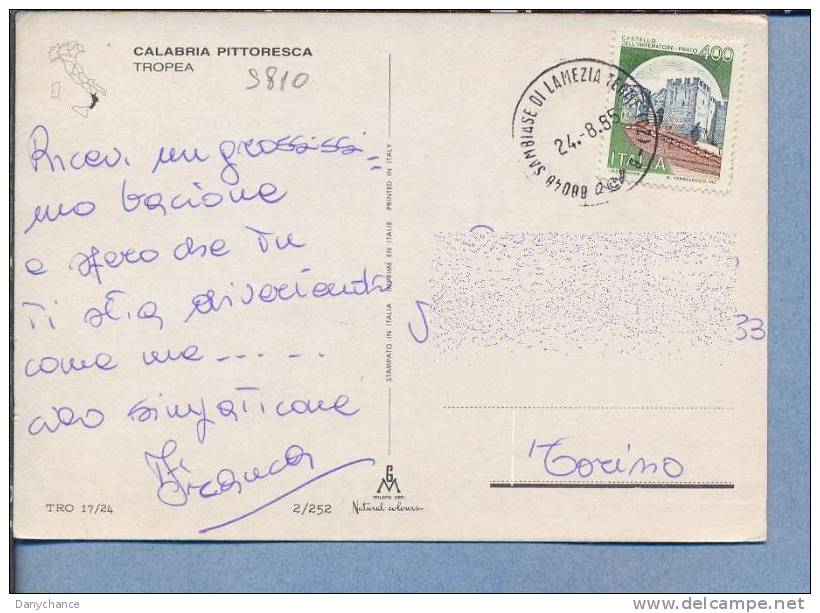 CALABRIA PITTORESCA
TROPEA
9810
Ricevi un grossissi=
mo bacione
e spero che tu
ti stia divertendo
come me.....
ciao simpaticone
Franca
TRO 17/24
2/252
STAMPATO IN ITALIA IMPRIME EN ITALIE PRINTED IN ITALY
GM
MILANO
Natural colours
CASTELLO
DELL'IMPERATORE - PRATO
400
ITALIA
88048 SAMBIASE DI LAMEZIA TERME (CZ)
24.-8.85
33
Torino
Danychance
delcampe.net